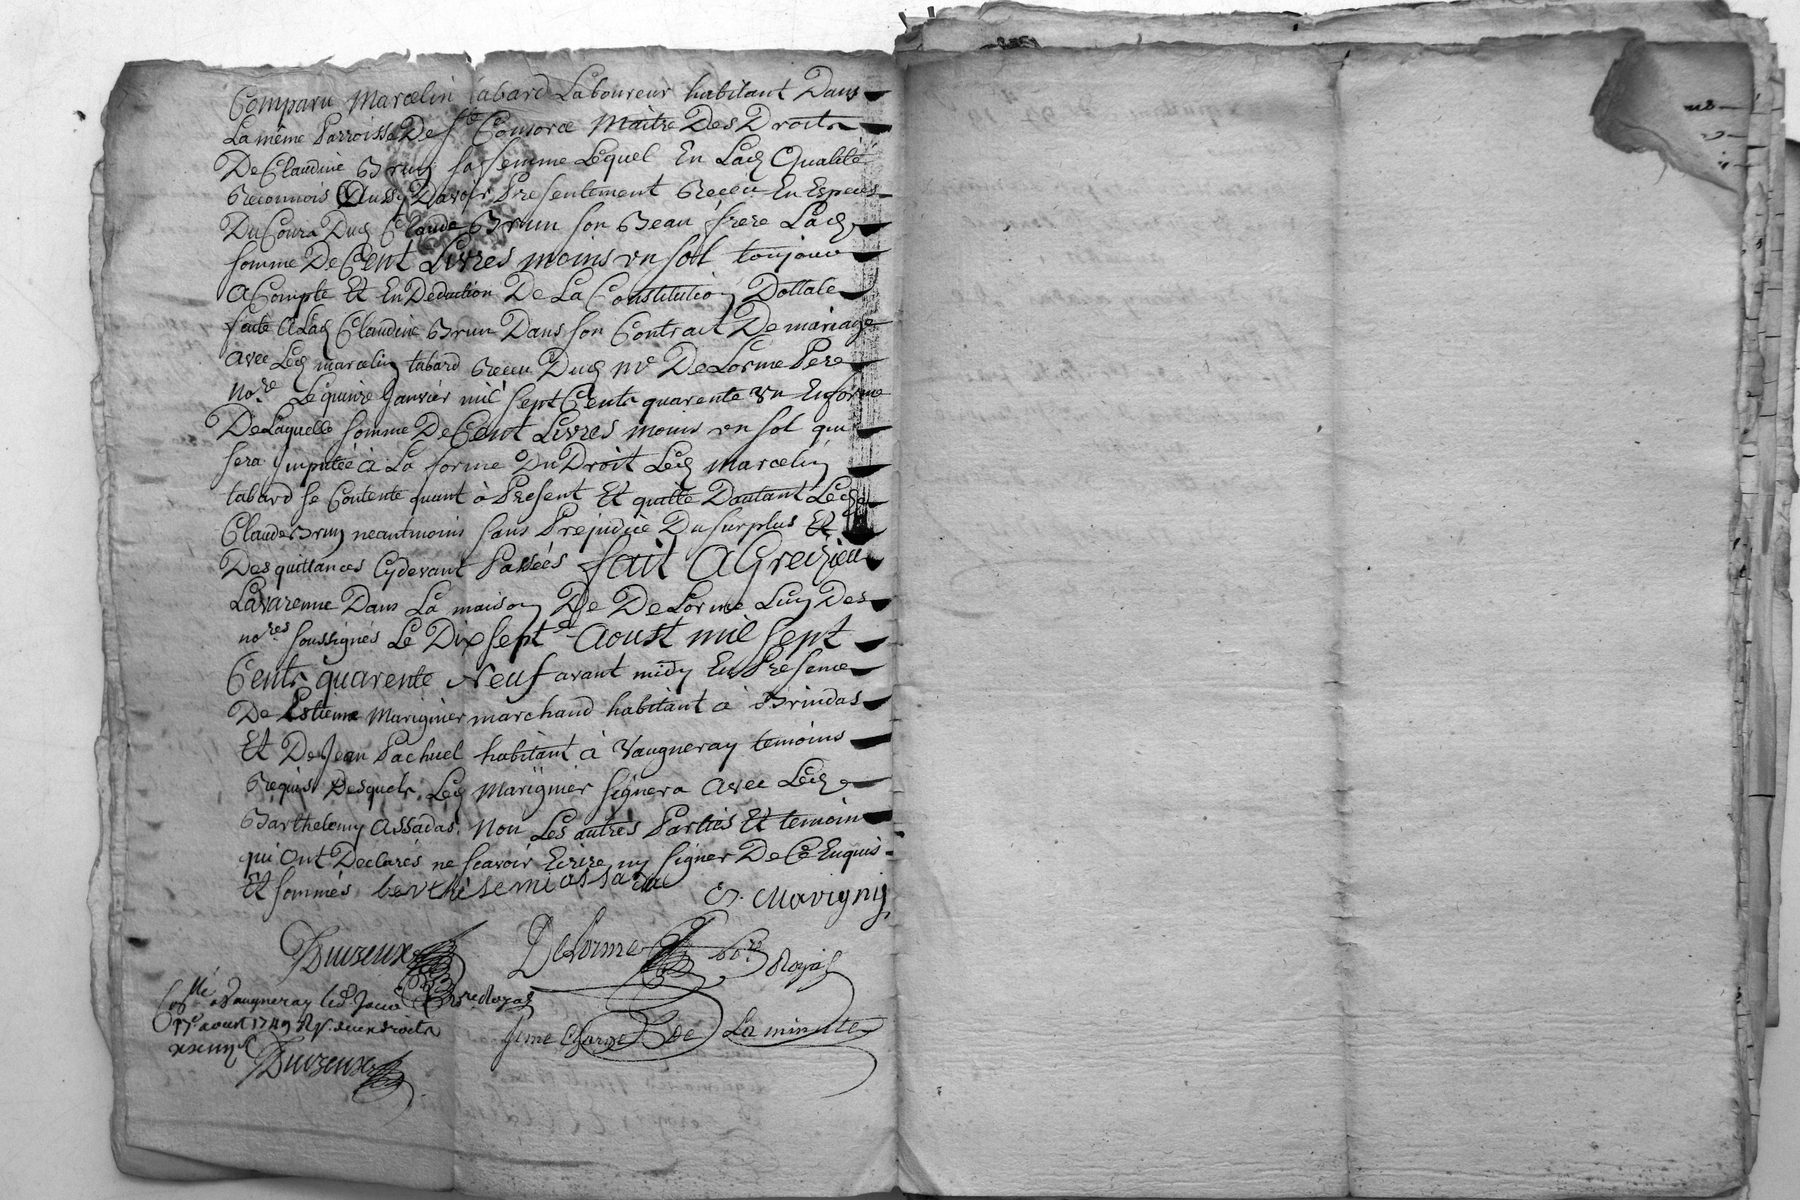 Comparu Marcelin tabard Laboureur habitant Dans
La même Parroisse De St Consorce Maitre Des Droits
De Claudine Brun sa femme Lequel En Lad Qualité
Reconnois Aussy Davoir Presentement Receu En Especes
Du Cours Dud Claude Brun son Beau frere Lad
somme De Cent Livres moins un soll toujours
A Compte Et En Deduction De La Constitution Dottale
faite A Lad Claudine Brun Dans son Contract De mariage
avec Led marcelin tabard Receu Dud Me DeLorme Pere
Nore Le quinze Janvier mil sept Cents quarente un En forme
De Laquelle somme De Cent Livres moins un sol qui
sera imputée à La forme Du Droit Led Marcelin
tabard se Contente quant à Present Et quitte Dautant Led
Claude Brun neantmoins sans Prejudice Du surplus Et
Des quittances Cydevant Passées fait A Grezieu
Lavarenne Dans La maison De DeLorme Luy Des
nores soussignés Le Dix sept Aoust mil sept
Cents quarente Neuf avant midy En Presence
De Estienne Marignier marchand habitant à Brindas
Et De Jean Pachuel habitant à Vaugneray temoins
Requis Desquels Led Marignier signera avec Led
Barthelemy Assadas Non Les autres Parties Et temoin
qui Ont Déclarés ne scavoir Ecrire ny signer De Ce Enquis
Et sommés berthelemi assada
E. Marigny
Delorme nore Royal
Collé a Vaugneray led. Jour nore Royal
17e aoust 1749 Rs. deux droits
Pour Charge De La minute